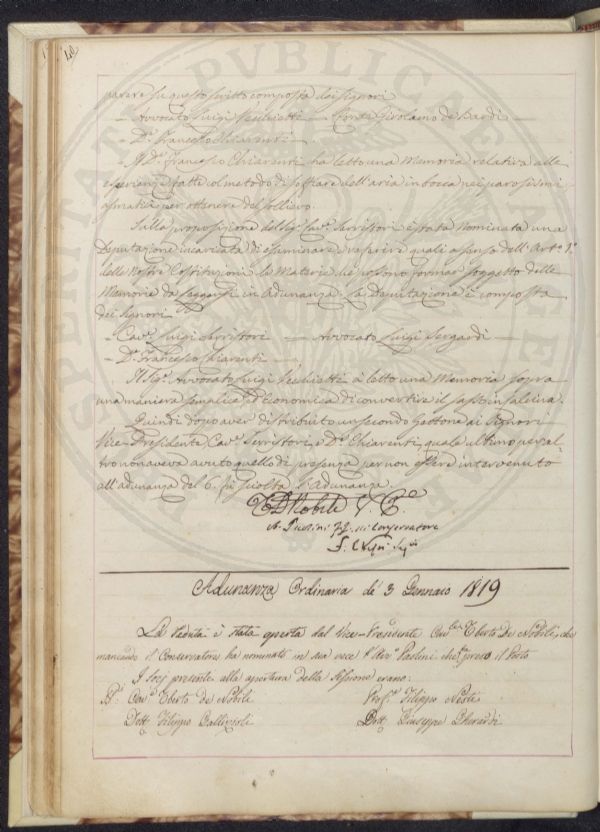 40
parere su questo scritto composta dai signori
– Avvocato Luigi Secchietti – Conte Girolamo de' Bardi –
– Dr. Francesco Chiarenti –
Il Dr. Francesco Chiarenti ha letto una Memoria relativa alle
esperienze fatte col metodo di soffiare dell'aria in bocca nei parosismi
asmatici per ottenere del sollievo.
Sulla proposizione del Sig.r Cav.e Serristori è stata nominata una
Deputazione incaricata di esaminare e riferire quali a senso dell'Art.o 1.o
delle nostre Costituzioni le Materie che possono formar soggetto delle
Memorie da leggersi in Adunanza. La Deputazione è composta
dei Signori
– Cav.e Luigi Serristori – Avvocato Luigi Sergardi –
– Dr. Francesco Chiarenti –
Il Sig.r Avvocato Luigi Secchietti à letto una Memoria sopra
una maniera semplice ed Economica di convertire il
Quindi dopo aver distribuito un secondo Gettone ai Signori
Vice-Presidente Cav.e Serristori, e Dr. Chiarenti, quale ultimo peral=
tro non aveva avuto quello di presenza per non essere intervenuto
all'adunanza del 6. si è sciolta l'Adunanza.
E D Nobili V. P.e
A. Paolini ff. di Conservatore
Adunanza Ordinaria de' 3 Gennaio 1819
La seduta è stata aperta dal Vice-Presidente Cav.e Tiberto De Nobili, che
mancando il Conservatore ha nominato in sua vece l'Avv.o Paolini che preso il Posto
I Socj presenti alla apertura della Sessione erano:
Cav.e Tiberto de Nobili Prof.e Filippo Nesti
Dott. Filippo Gallizioli Dott. Giuseppe Gherardi
SPERITATE PUBLICAE AUGENDAE